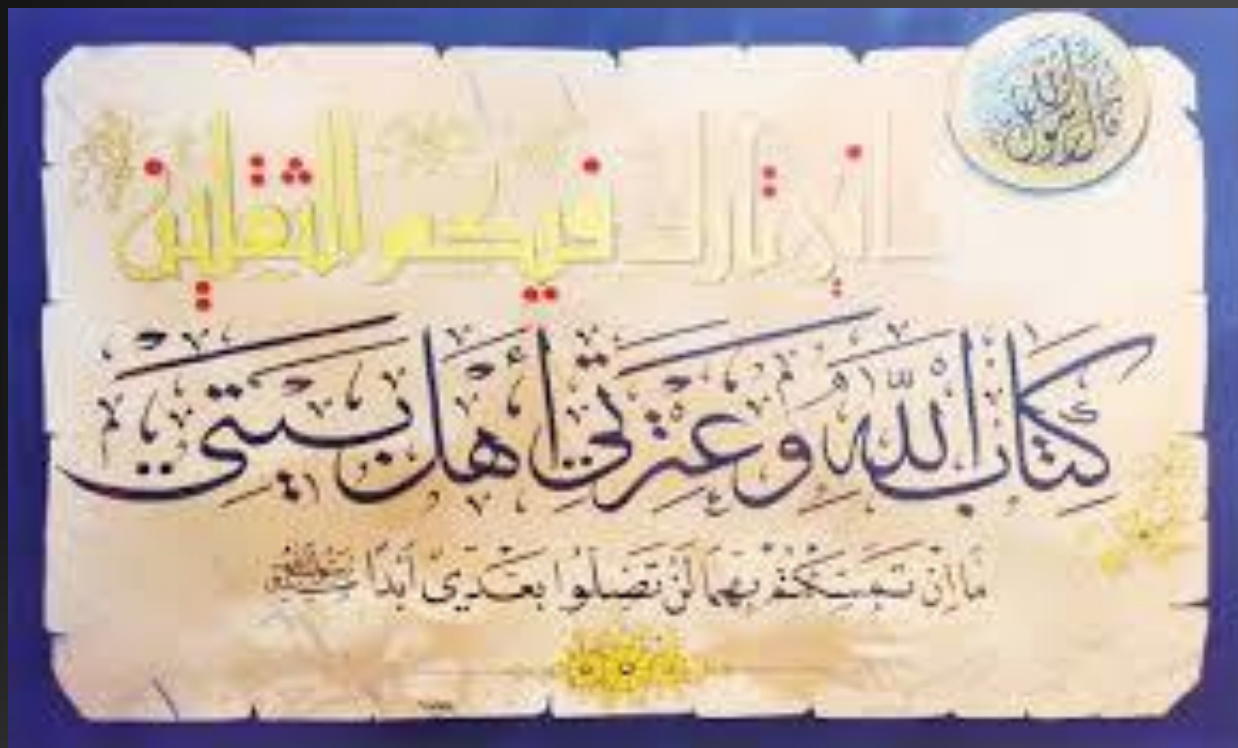 قال رسول الله
إني تارك فيكم الثقلين
كِتَابَ اللّٰهِ وَعِتْرَتِي أَهْلَ بَيْتِي
مَا إِنْ تَمَسَّكْتُمْ بِهِمَا لَنْ تَضِلُّوا بَعْدِي أَبَدًا